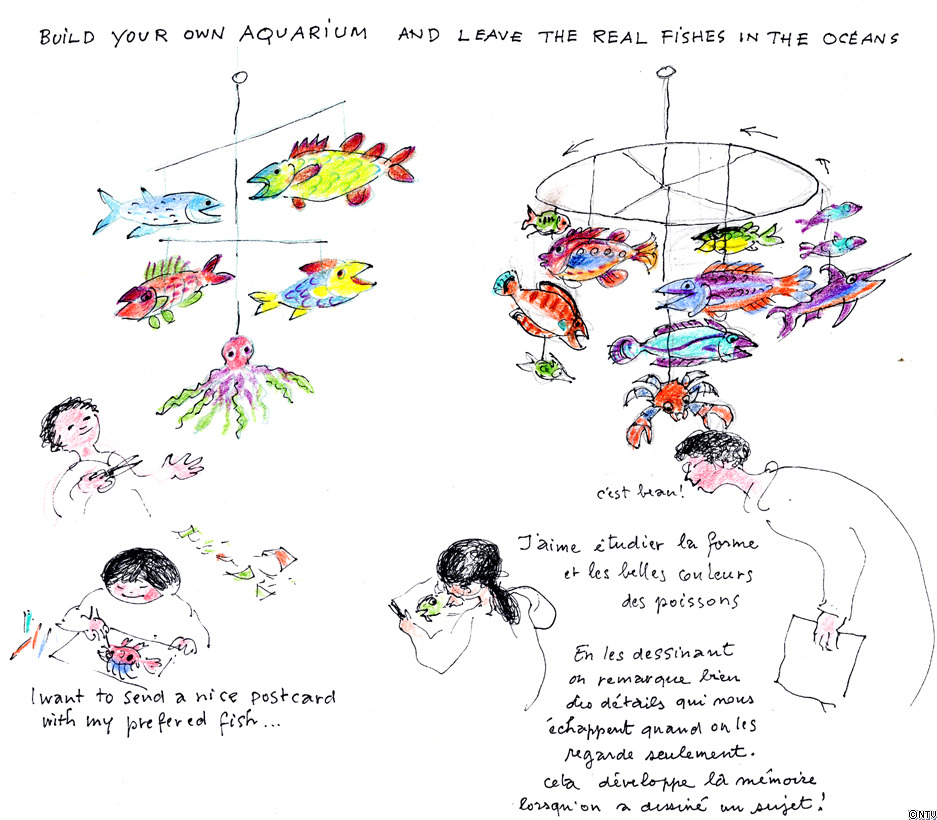 BUILD YOUR OWN AQUARIUM AND LEAVE THE REAL FISHES IN THE OCEANS
c'est beau!
J'aime étudier la forme
et les belles couleurs
des poissons
I want to send a nice postcard
with my prefered fish...
En les dessinant
on remarque bien
des détails qui nous
échappent quand on les
regarde seulement.
cela développe la mémoire
lorsqu'on a dessiné un sujet!
©NTV